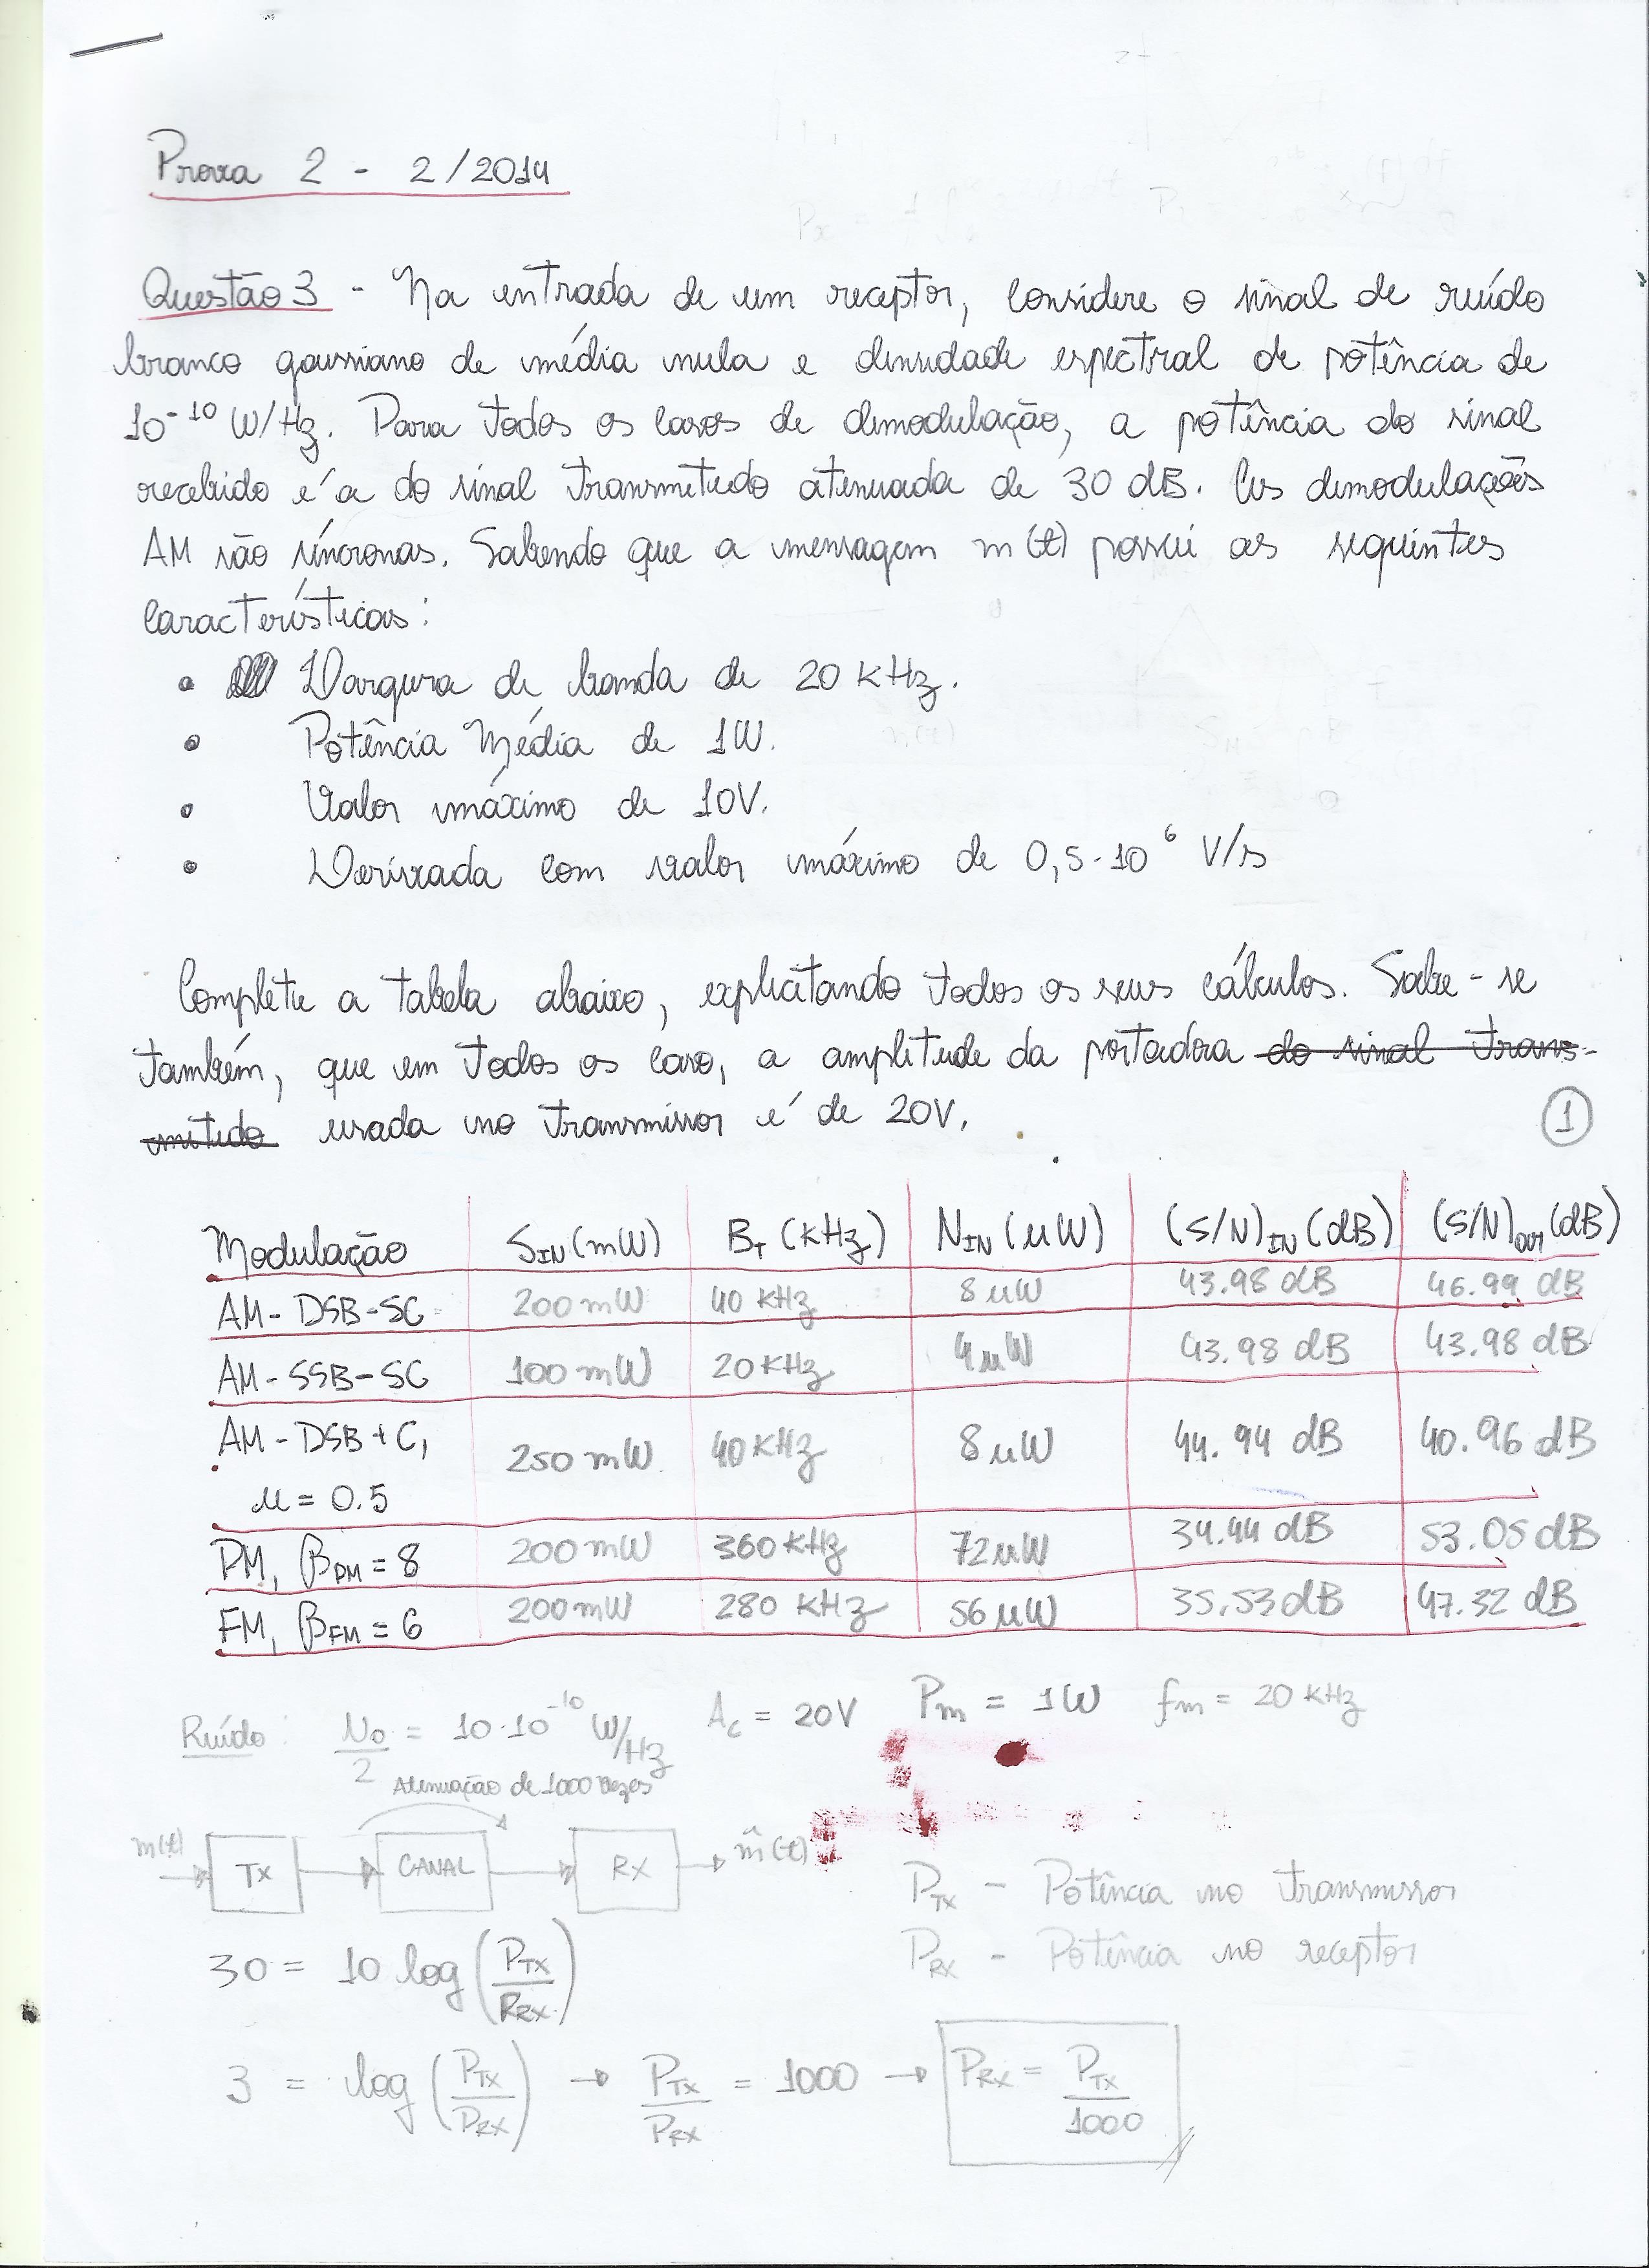 Prova 2 - 2/2014
Questão 3 - Na entrada de um receptor, considere o sinal de ruído
branco gaussiano de média nula e densidade espectral de potência de
10⁻¹⁰ W/Hz. Para todos os casos de demodulação, a potência do sinal
recebido é a do sinal transmitido atenuada de 30 dB. As demodulações
AM são síncronas. Sabendo que a mensagem m(t) possui as seguintes
características:
• Largura de banda de 20 KHz.
• Potência Média de 1W.
• Valor máximo de 10V.
• Derivada com valor máximo de 0,5·10⁶ V/s
Complete a tabela abaixo, explicitando todos os seus cálculos. Sabe-se
também, que em todos os caso, a amplitude da portadora do sinal trans-
mitido usada no transmissor é de 20V.
1
Modulação S_IN (mW) B_T (KHz) N_IN (μW) (S/N)_IN (dB) (S/N)_OUT (dB)
AM-DSB-SC 200 mW 40 KHz 8 μW 43.98 dB 46.99 dB
AM-SSB-SC 100 mW 20 KHz 4 μW 43.98 dB 43.98 dB
AM-DSB+C, 250 mW 40 KHz 8 μW 44.94 dB 40.96 dB
μ = 0.5
PM, β_PM = 8 200 mW 360 KHz 72 μW 34.44 dB 53.05 dB
FM, β_FM = 6 200 mW 280 KHz 56 μW 35.53 dB 47.32 dB
Ruído: N₀/2 = 10·10⁻¹⁰ W/Hz A_c = 20V P_m = 1W f_m = 20 KHz
Atenuação de 1000 vezes
m(t) TX CANAL RX m̂(t)
P_TX - Potência no transmissor
P_RX - Potência no receptor
30 = 10 log (P_TX/P_RX)
3 = log (P_TX/P_RX) → P_TX/P_RX = 1000 → P_RX = P_TX/1000